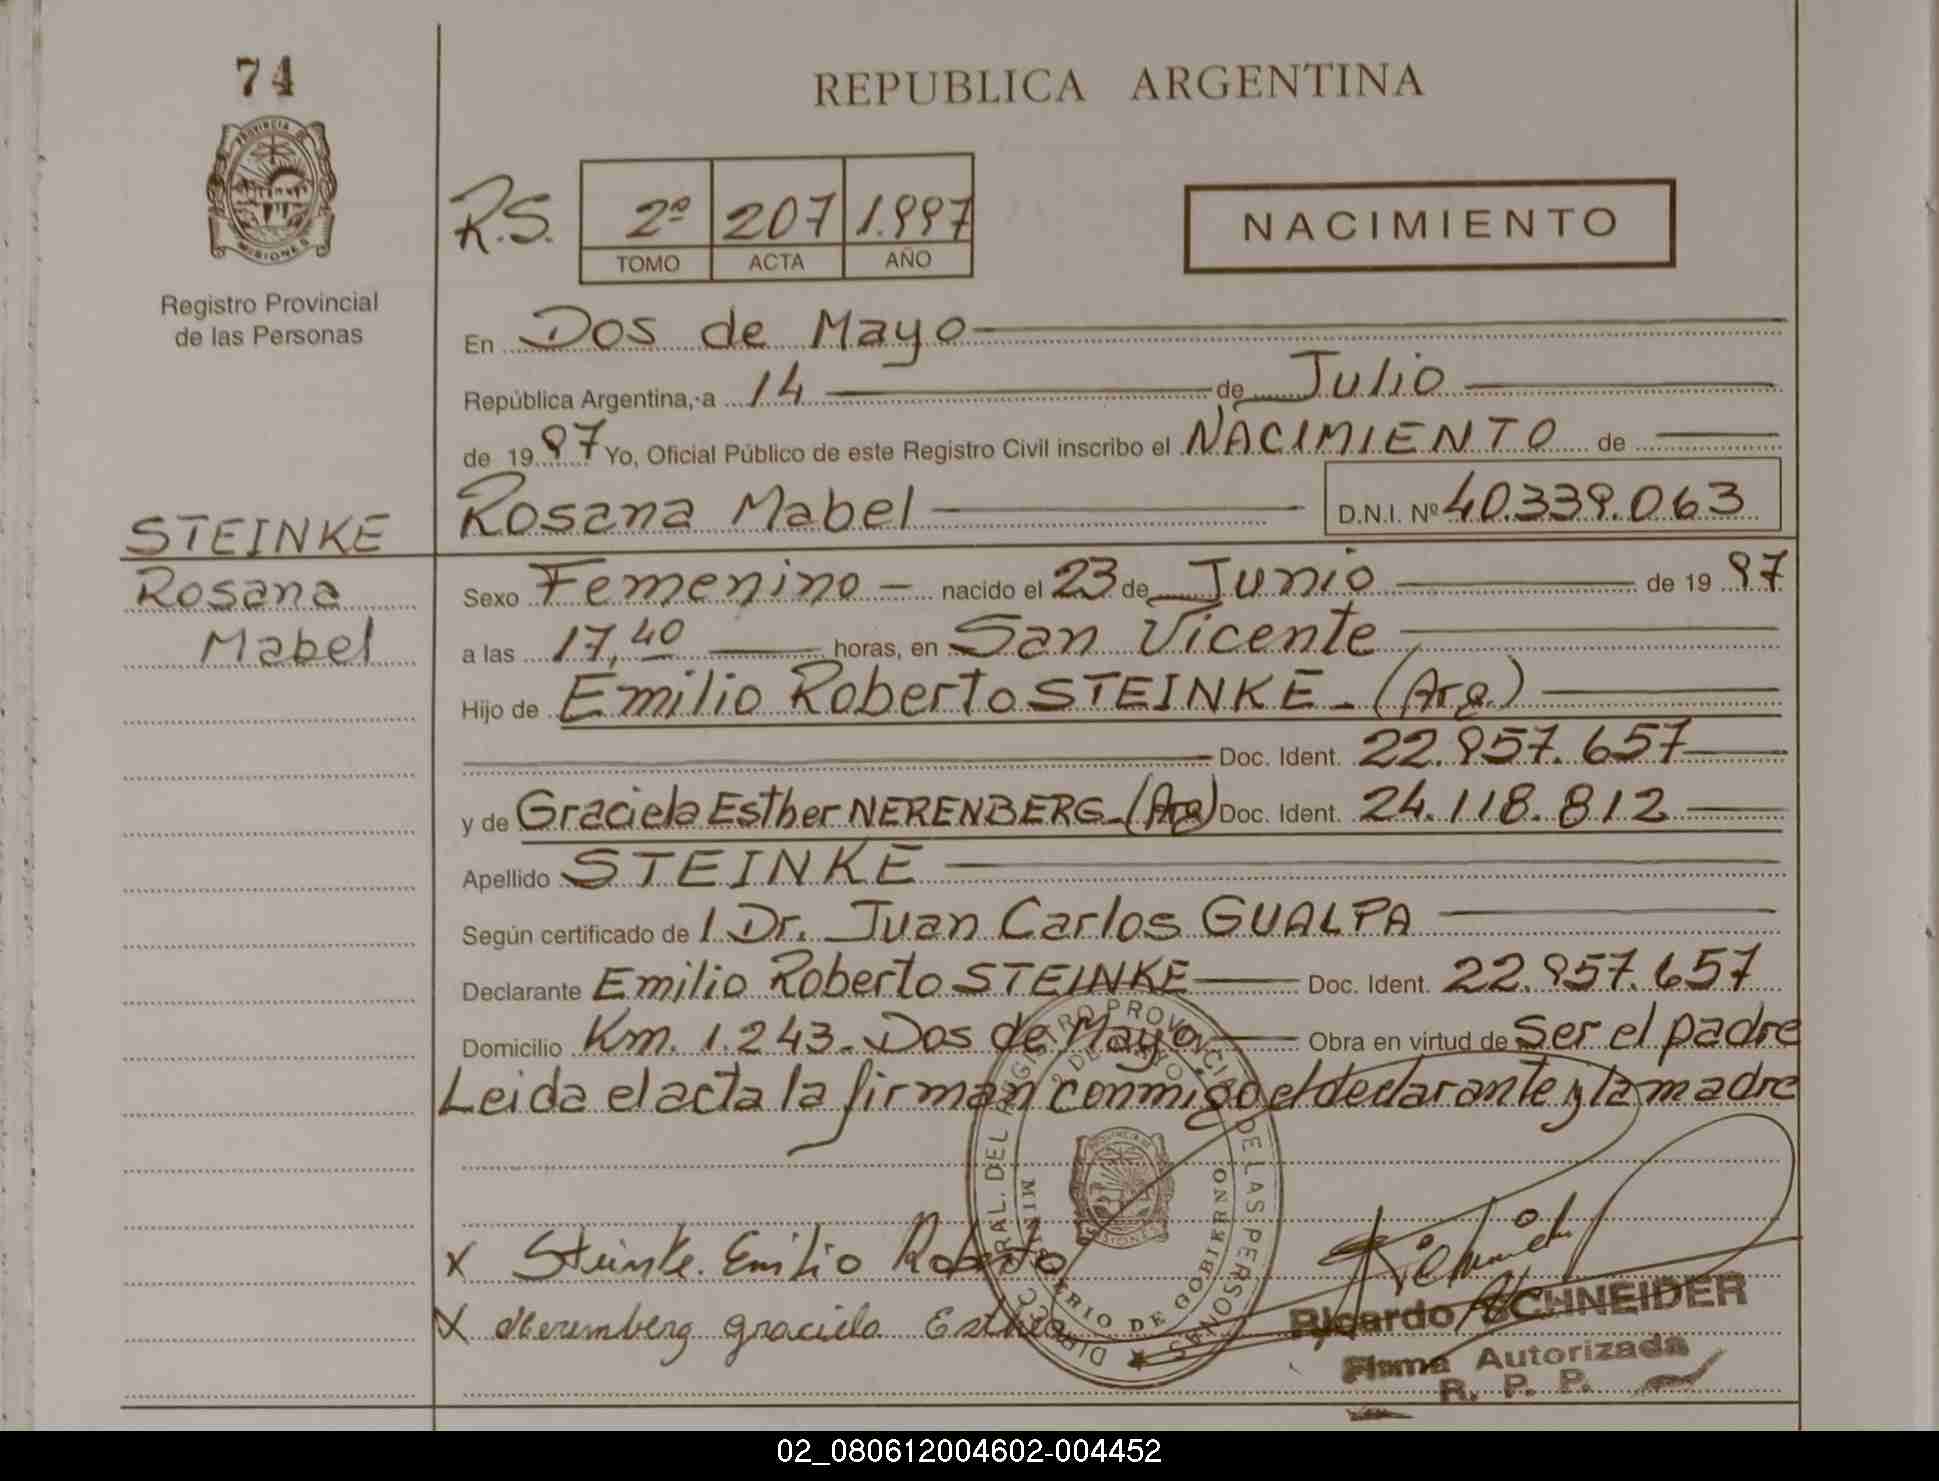 74
PROVINCIA DE
MISIONES
Registro Provincial
de las Personas
REPUBLICA ARGENTINA
R.S. 2º 207 1.997
TOMO ACTA AÑO
NACIMIENTO
En Dos de Mayo
República Argentina, a 14 de Julio
de 1997 Yo, Oficial Público de este Registro Civil inscribo el NACIMIENTO de
Rosana Mabel D.N.I. Nº 40.339.063
STEINKE
Rosana
Mabel
Sexo Femenino nacido el 23 de Junio de 1997
a las 17,40 horas, en San Vicente
Hijo de Emilio Roberto STEINKE - (Arg.)
Doc. Ident. 22.957.657
y de Graciela Esther NERENBERG - (Arg) Doc. Ident. 24.118.812
Apellido STEINKE
Según certificado de l Dr. Juan Carlos GUALPA
Declarante Emilio Roberto STEINKE Doc. Ident. 22.957.657
Domicilio Km. 1.243 - Dos de Mayo Obra en virtud de Ser el padre
Leida el acta la firman conmigo el declarante y la madre
DIRECC GRAL. DEL REGISTRO PROVINCIAL DE LAS PERSONAS
2 DE MAYO
MINISTERIO DE GOBIERNO
PROVINCIA DE
MISIONES
x Steinke. Emilio Roberto
x Neremberg graciela Esther
Ricardo SCHNEIDER
Firma Autorizada
R. P. P.
02_080612004602-004452